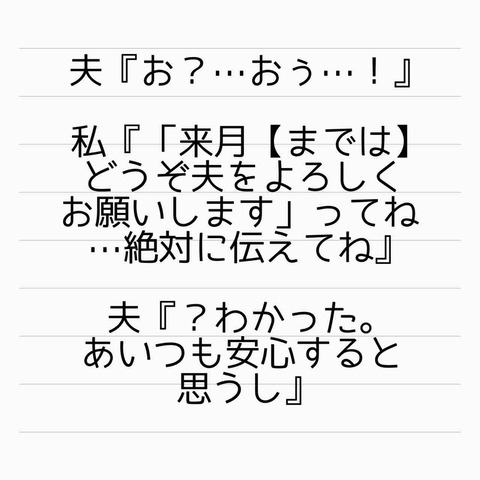 夫『お？…おぅ…！』
私『「来月【までは】
どうぞ夫をよろしく
お願いします」ってね
…絶対に伝えてね』
夫『？わかった。
あいつも安心すると
思うし』